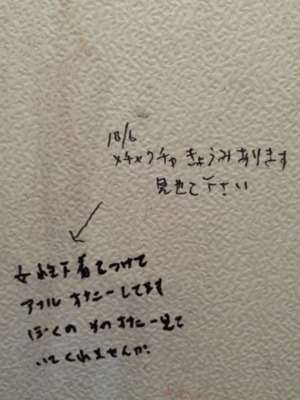 18/6
メチャクチャ きょうみあります
見せて下さい
女性下着をつけて
アナル オナニーしてます
ぼくの オナニー見て
いてくれませんか